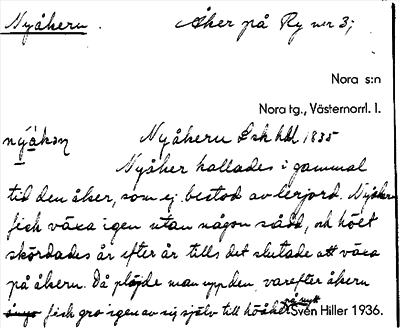 Nyåkern. Åker på Ry nr 3;
Nora s:n
Nora tg., Västernorrl. l.
nýàkɜn Nyåkern Lsk hdl 1835
Nyåker kallades i gammal
tid den åker, som ej bestod av lerjord. Nyåkern
fick växa igen utan någon sådd, och höet
skördades år efter år tills det slutade att växa
på åkern. Då plöjde man upp den, varefter åkern
fick gro igen av sig själv till höåker ånyt
Sven Hiller 1936.